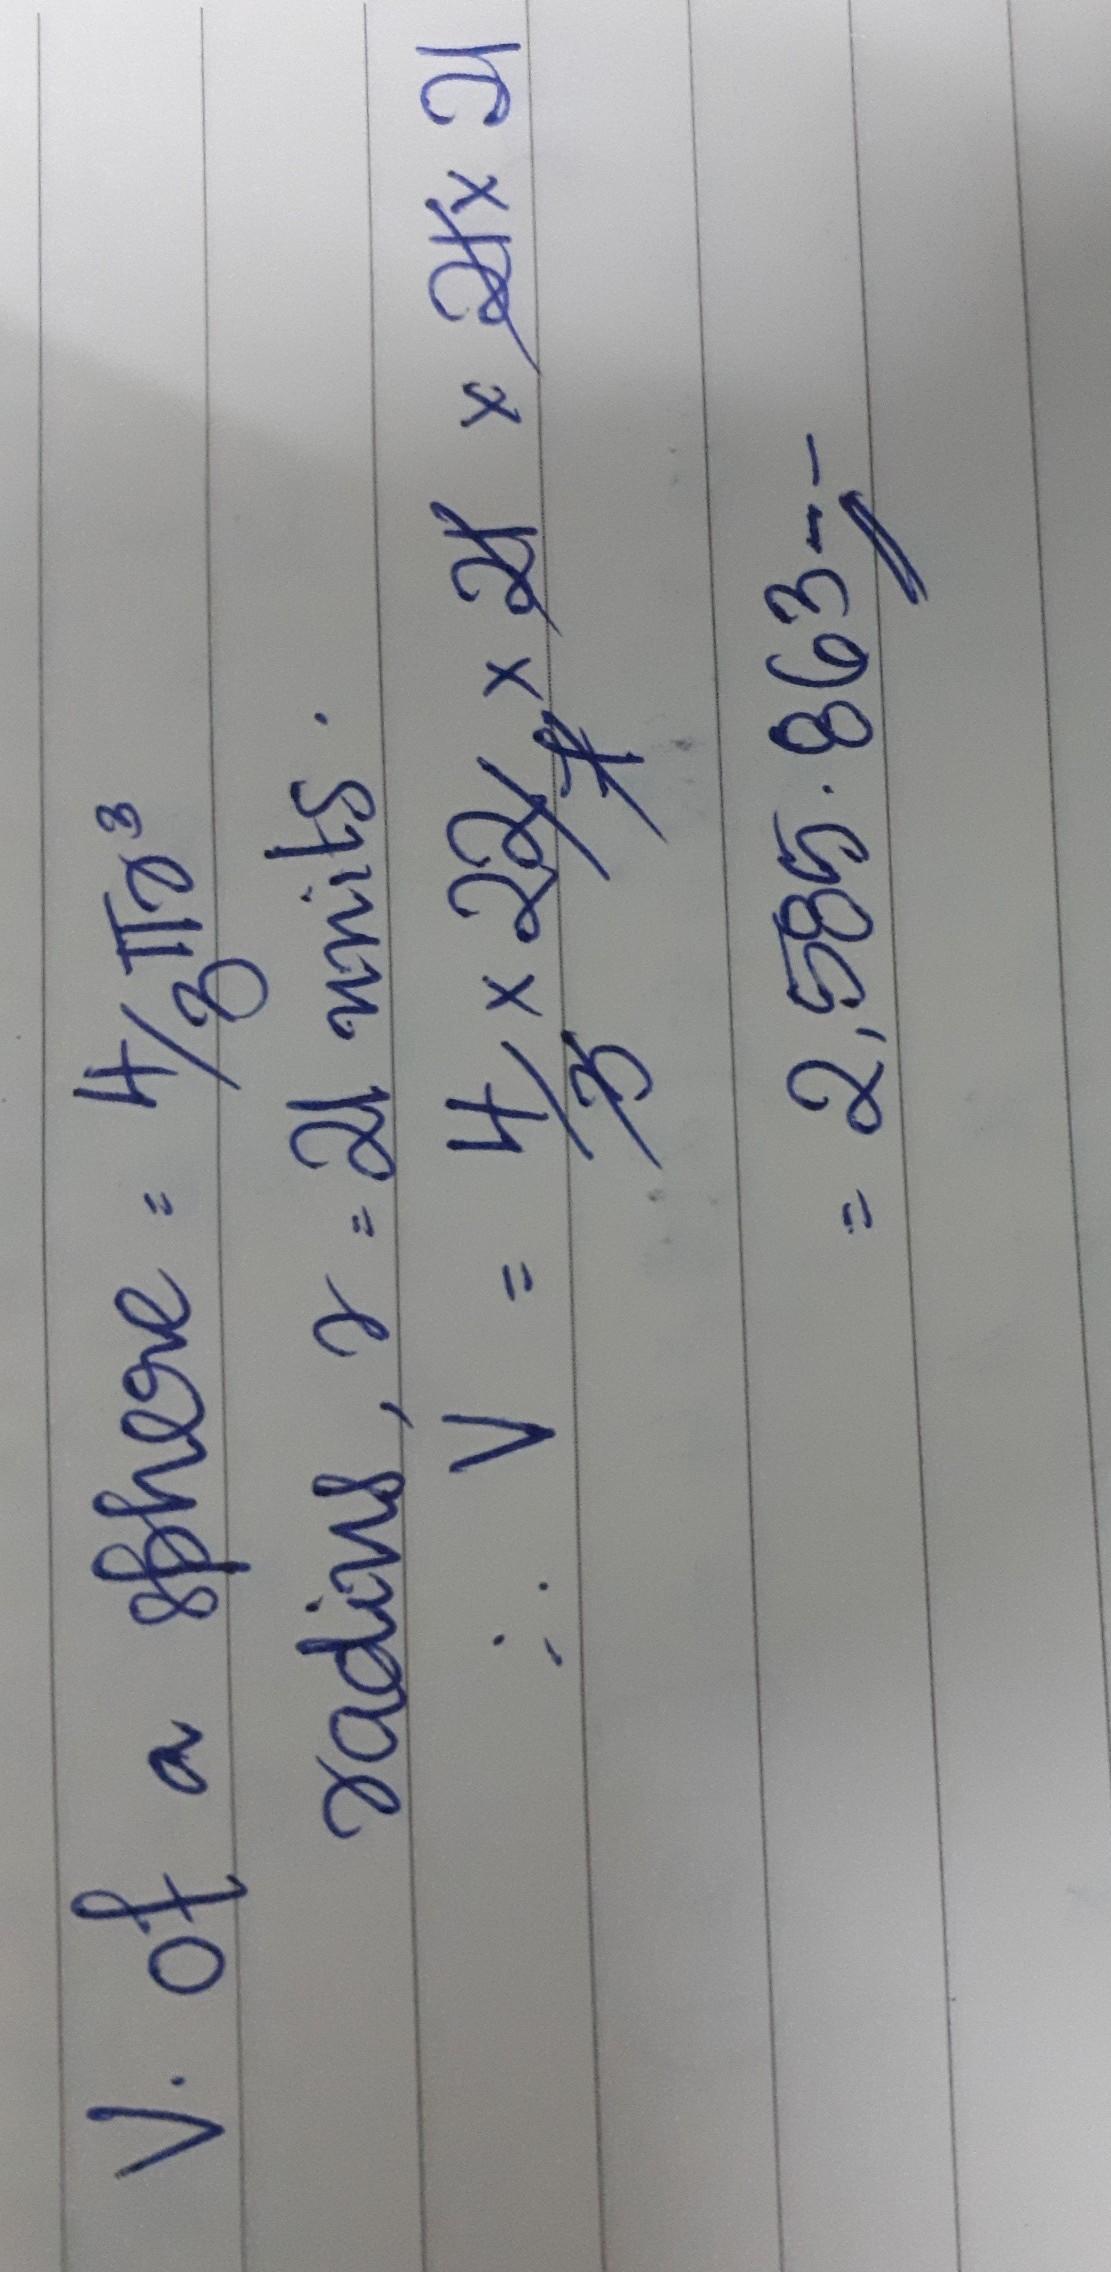 V. of a sphere = 4/3 πr³
radius, r = 21 units.
∴ V = 4/3 × 22/7 × 21 × 21 × 21
= 2,585.863--